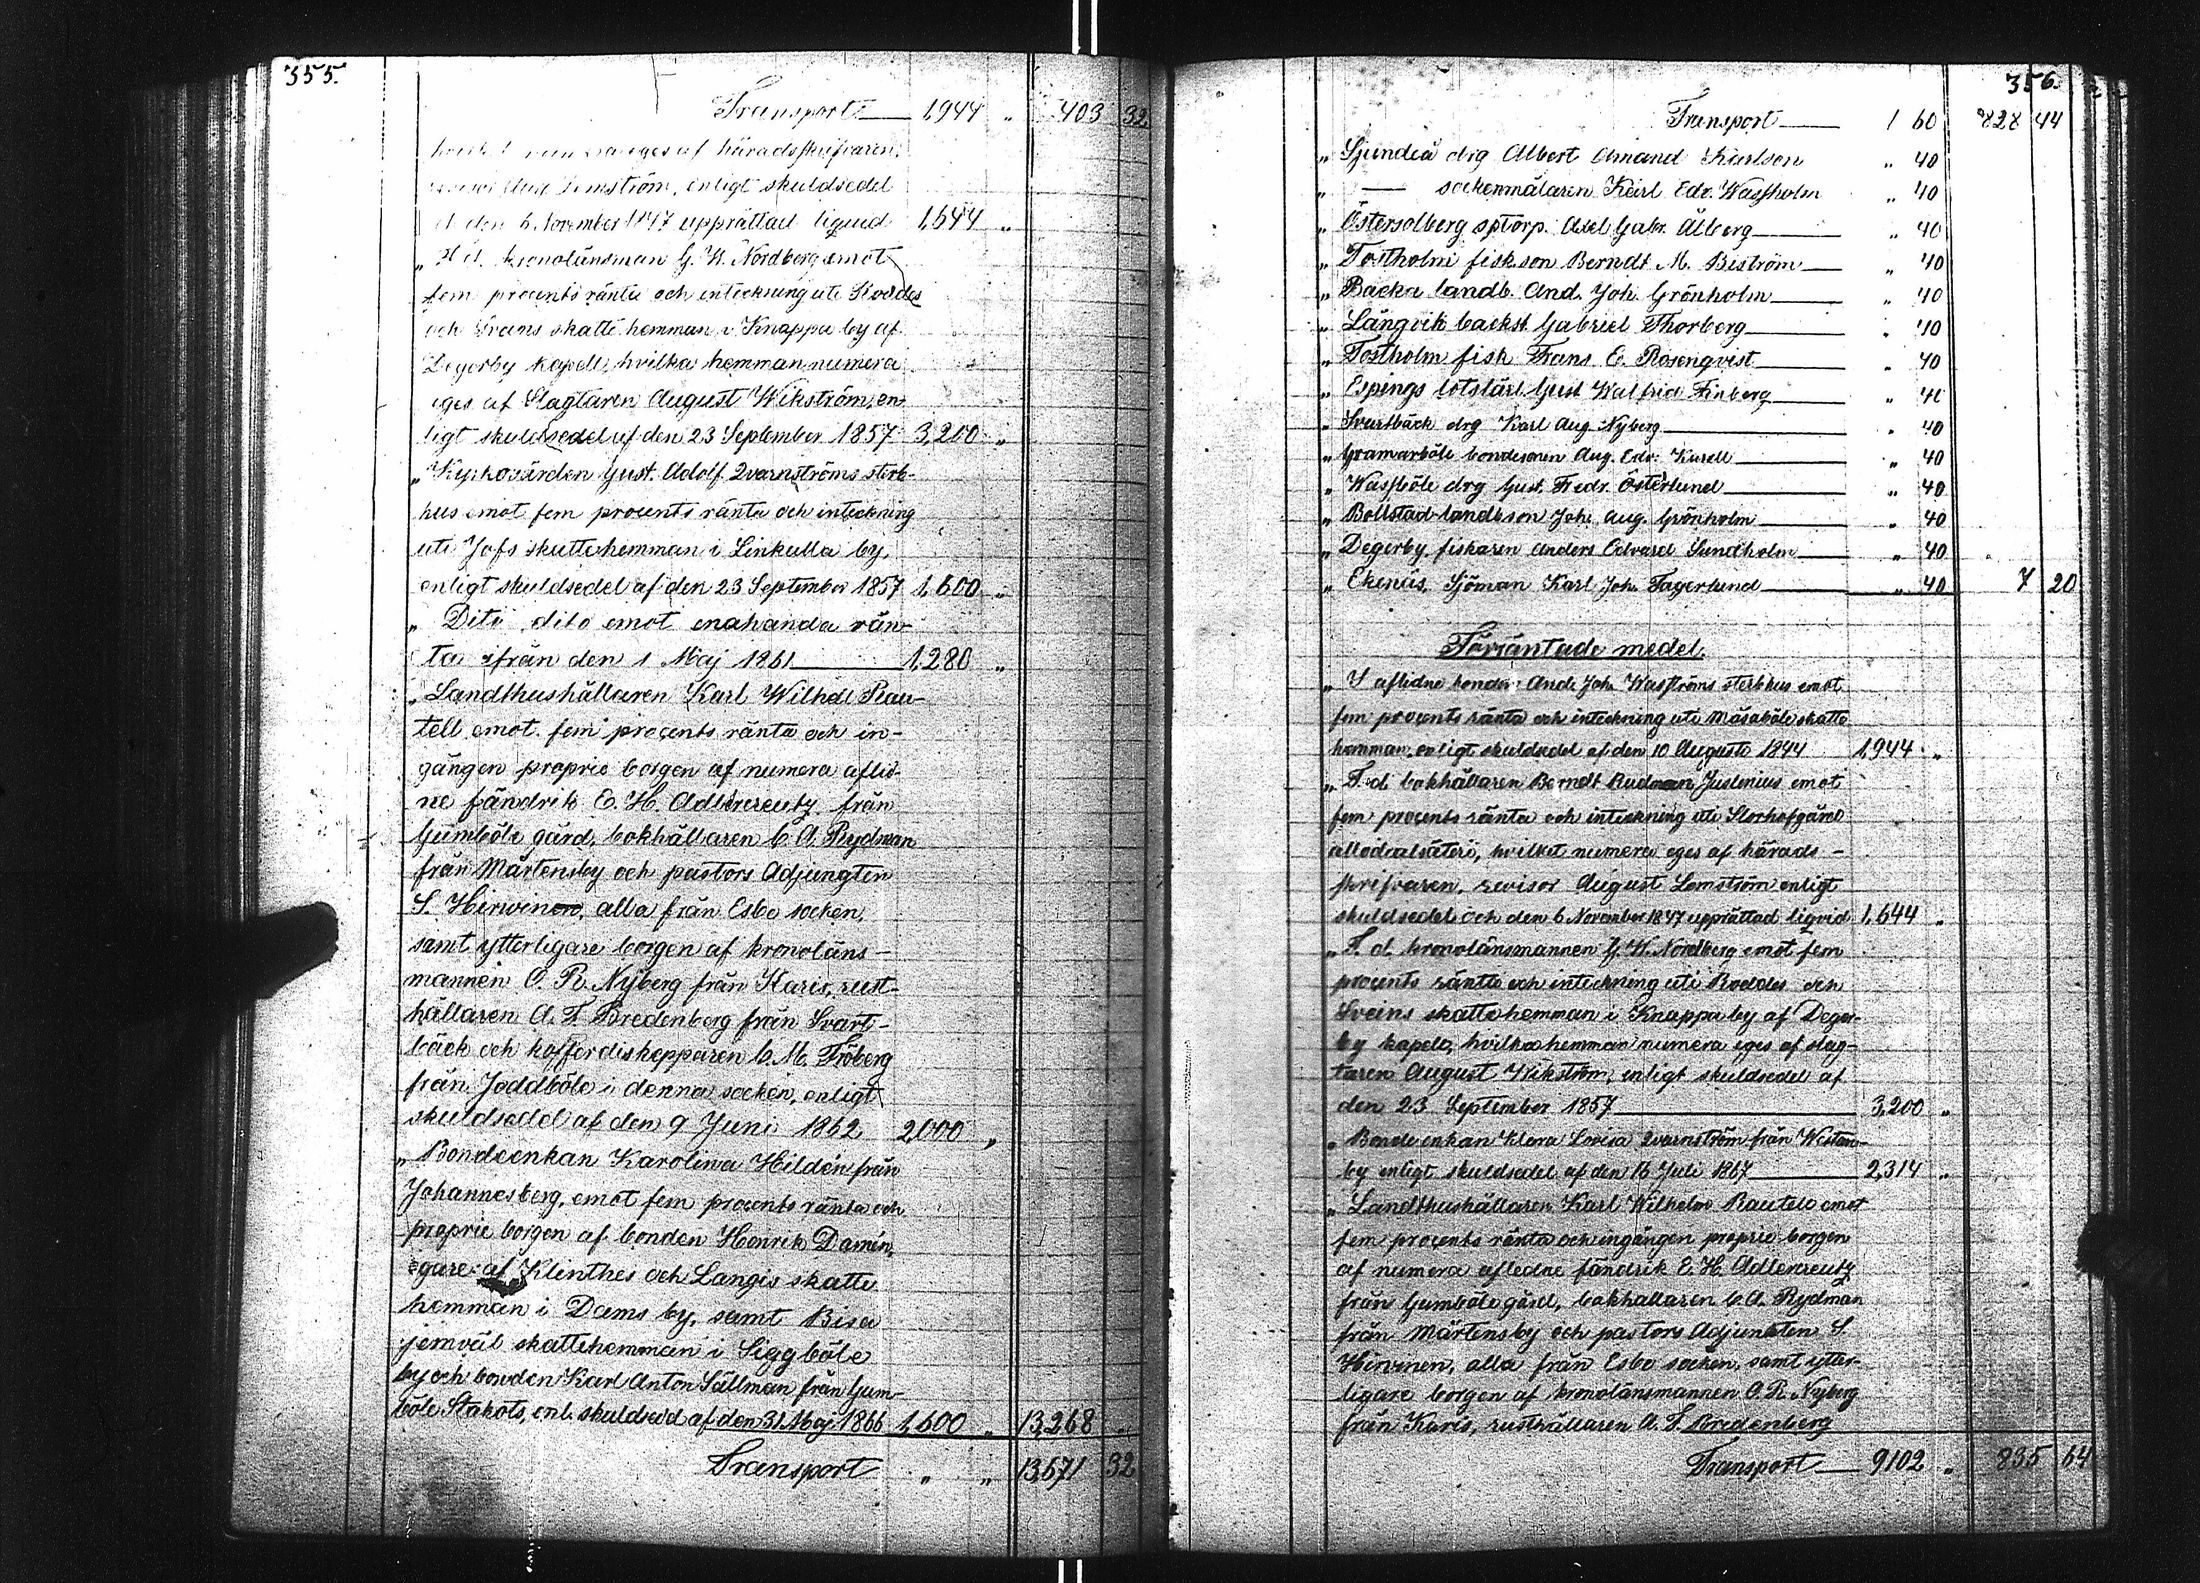 355.
Transport 1,944 „ 403 32
numera eges af häradsskrifvaren,
revisor Aug. Lemström, enligt skuldsedel
och den 6 November 1847 upprättad liquid 1,644 „
„ F. d. kronolänsman G. W. Nordberg emot
fem procents ränta och inteckning uti Roddes
och Svens skatte hemman i Knappa by af
Degerby kapell, hvilka hemman numera
eges af Slagtaren August Wikström, en-
ligt skuldsedel af den 23 September 1857 3,200 „
„ Kyrkovärden Gust. Adolf Qvarnströms sterb-
hus emot fem procents ränta och inteckning
uti Jofs skattehemman i Linkulla by,
enligt skuldsedel af den 23 September 1857 1,600 „
„ Dito dito emot enahanda rän-
ta ifrån den 1 Maj 1861 1,280 „
„ Landthushållaren Karl Wilhel Rau-
tell emot fem procents ränta och in-
gången proprie borgen af numera aflid-
ne fändrik E. H. Adlercreutz från
Gumböle gård, bokhållaren C. A. Rydman
från Mårtensby och pastors Adjungten
S. Hirvinen, alla från Esbo socken,
samt ytterligare borgen af kronoläns-
mannen O. R. Nyberg från Karis, rust-
hållaren A. F. Bredenberg från Svart-
bäck och kofferdiskepparen C. M. Fröberg
från Joddböle i denna socken, enligt
skuldsedel af den 9 Juni 1862 2000 „
„ Bondeenkan Karolina Hildén från
Johannesberg, emot fem procents ränta och
proprie borgen af bonden Henrik Damén,
egare af Klinthes och Langis skatte
hemman i Dams by, samt Bisa
jemväl skattehemman i Siggböle
by och bonden Karl Anton Sällman från Gum-
böle Stakots, enl. skuldsed af den 31 Maj 1866 1,600 „ 13,268 „
Transport „ „ 13,671 32
356.
Transport 1 60 828 44
„ Sjundeå drg Albert Amand Karlson „ 40
„ — sockenmålaren Karl Edv. Wassholm „ 40
„ Östersolberg sptorp. Axel Gabr. Ålberg „ 40
„ Tostholm fiskson Berndt M. Biström „ 40
„ Backa landb. And. Joh. Grönholm „ 40
„ Långvik backst. Gabriel Thorberg „ 40
„ Tostholm fisk Frans E. Rosenqvist „ 40
„ Espings lotslärl Gust Walfrid Finberg „ 40
„ Svartbäck drg Karl Aug. Nyberg „ 40
„ Gramarböle bondesonen Aug. Edv. Karell „ 40
„ Wassböle drg Gust. Fredr. Österlund „ 40
„ Bollstad landbson Joh. Aug. Grönholm „ 40
„ Degerby fiskaren Anders Edvard Sundholm „ 40
„ Ekenäs, Sjöman Karl Joh. Fagerlund „ 40 7 20
Förräntade medel.
„ I aflidne bonden And. Joh. Wasströms sterbhus emot
fem procents ränta och inteckning uti Måsaböle skatte
hemman, enligt skuldsedel af den 10 Augusti 1844 1,944 „
„ F. d. bokhållaren Berndt Rudman Juslenius emot
fem procents ränta och inteckning uti Storhofgård
allodialsäteri, hvilket numera eges af härads-
skrifvaren, revisor August Lemström enligt
skuldsedel och den 6 November 1847 upprättad liqvid 1,644 „
„ F. d. kronolänsmannen G. W. Nordberg emot fem
procents ränta och inteckning uti Roddes och
Svens skattehemman i Knappa by af Deger-
by kapell, hvilka hemman numera eges af slag-
taren August Wikström, enligt skuldsedel af
den 23 September 1857 3,200 „
„ Bondeenkan Klara Lovisa Qvarnström från Westan-
by enligt skuldsedel af den 16 Juli 1867 2,314 „
„ Landthushållaren Karl Wilhelm Rautell emot
fem procents ränta och ingången proprie borgen
af numera aflidne fändrik E. H. Adlercreutz
från Gumböle gård, bokhållaren C. A. Rydman
från Mårtensby och pastors Adjunkten S.
Hirvinen, alla från Esbo socken, samt ytter-
ligare borgen af kronolänsmannen O. R. Nyberg
från Karis, rusthållaren A. F. Bredenberg
Transport 9102 „ 835 64